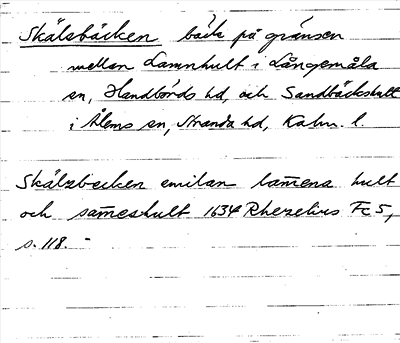 Skälsbäcken bäck på gränsen
mellan Lammhult i Långemåla
sn, Handbörds hd, och Sandbäckshult
i Ålems sn, Stranda hd, Kalm. l.
Skälzbecken emilan lam̅ena hult
och sam̅eshult 1634 Rhezelius Fc 5,
s. 118. -